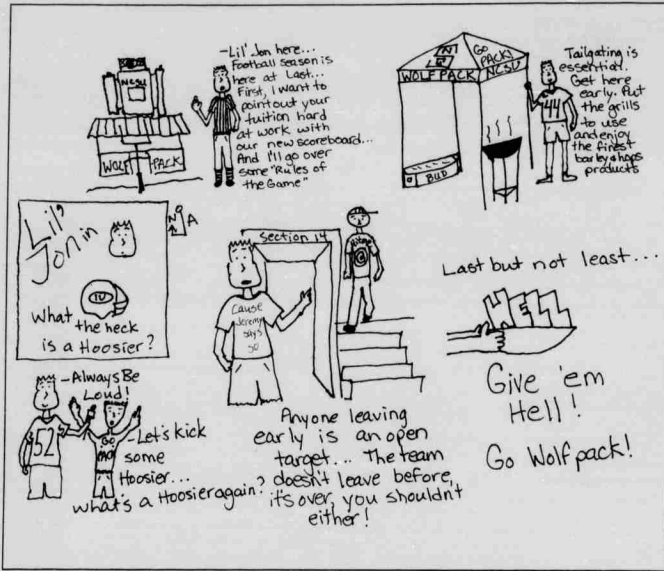 NCSU
WOLF PACK
-Lil' Jon here...
Football season is
here at Last...
First, I want to
point out your
tuition hard
at work with
our new scoreboard...
And I'll go over
some "Rules of
the Game"
GO
PACK!
WOLFPACK NCSU
BUD
44
Tailgating is
essential.
Get here
early. Put
the grills
to use
and enjoy
the finest
barley & hops
products
Lil'
Jon in
What the heck
is a Hoosier?
Section 14
Cause
Jeremy
says
so
Anyone leaving
early is an open
target... The team
doesn't leave before
it's over, you shouldn't
either!
-Always Be
Loud!
52
GO
PACK
-Let's kick
some
Hoosier...
what's a Hoosier again?
Last but not least...
Give 'em
Hell!
Go Wolfpack!